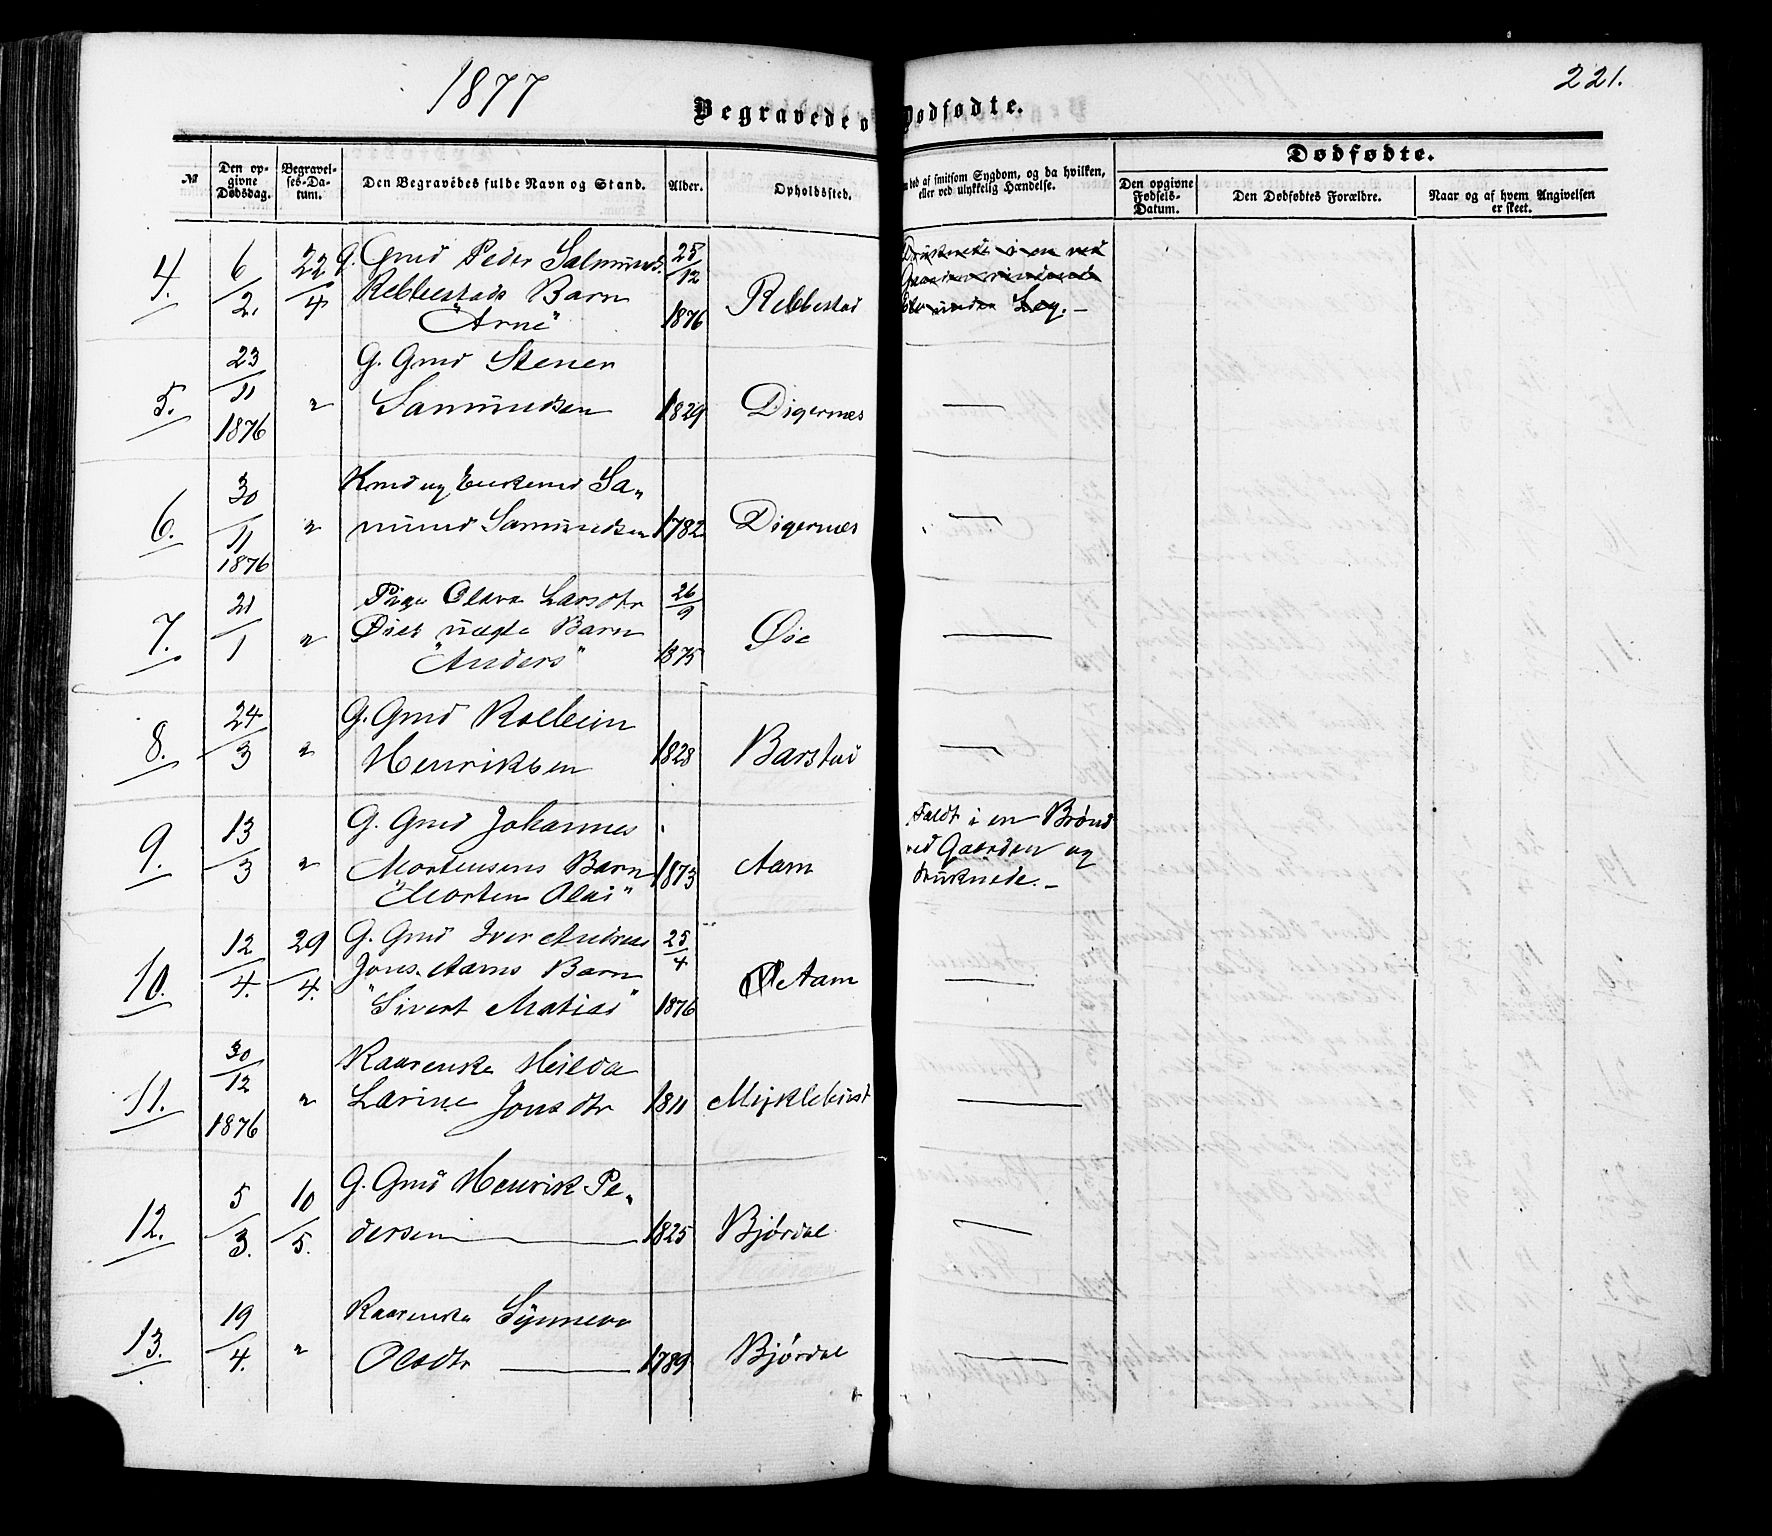 1877
221.
Begravede o Dødfødte.
№
Den op-
givne
Dødsdag.
Begravel-
ses-Da-
tum.
Den Begravedes fulde Navn og Stand.
Alder.
Opholdssted.
ved af smitsom Sygdom, og da hvilken,
eller ved ulykkelig Hændelse.
Dødfødte.
Den opgivne
Fødsels-
Datum.
Den Dødfødtes Forældre.
Naar og af hvem Angivelsen
er skeet.
4. 6/2. 22/4 G. Gmd Peder Salmunds. 25/12
Rebbestads Barn 1876 Rebbestad
"Arne"
Druknede i en ved
Gaarden
under Leg. —
5. 23/11 1876 " G. Gmd Stener
Samundsen 1829 Digernæs —
6. 30/11 1876 " Kmd og Enkemd Sa„
mund Samundsen 1782 Digernæs —
7. 21/1 " Pige Olava Larsdtr 26/9
Øies uægte Barn 1875 Øie —
"Anders"
8. 24/3 " G. Gmd Kolbein
Henriksen 1828 Barstad —
9. 13/3 " G. Gmd Johannes
Mortensens Barn 1873 Aam
"Morten Olai"
Faldt i en Brønd
ved Gaarden og
druknede. —
10. 12/4. 29/4. G. Gmd Iver Andreas 25/4
Jons. Aams Barn 1876 Aam —
"Sivert Matias"
11. 30/12 1876 " Kaarenske Heilda
Larine Jonsdtr 1811 Myklebust —
12. 5/3. 10/5. G. Gmd Henrik Pe„
dersen — 1825 Bjørdal —
13. 19/4. " Kaarenske Synneva
Olsdtr — 1789 Bjørdal —